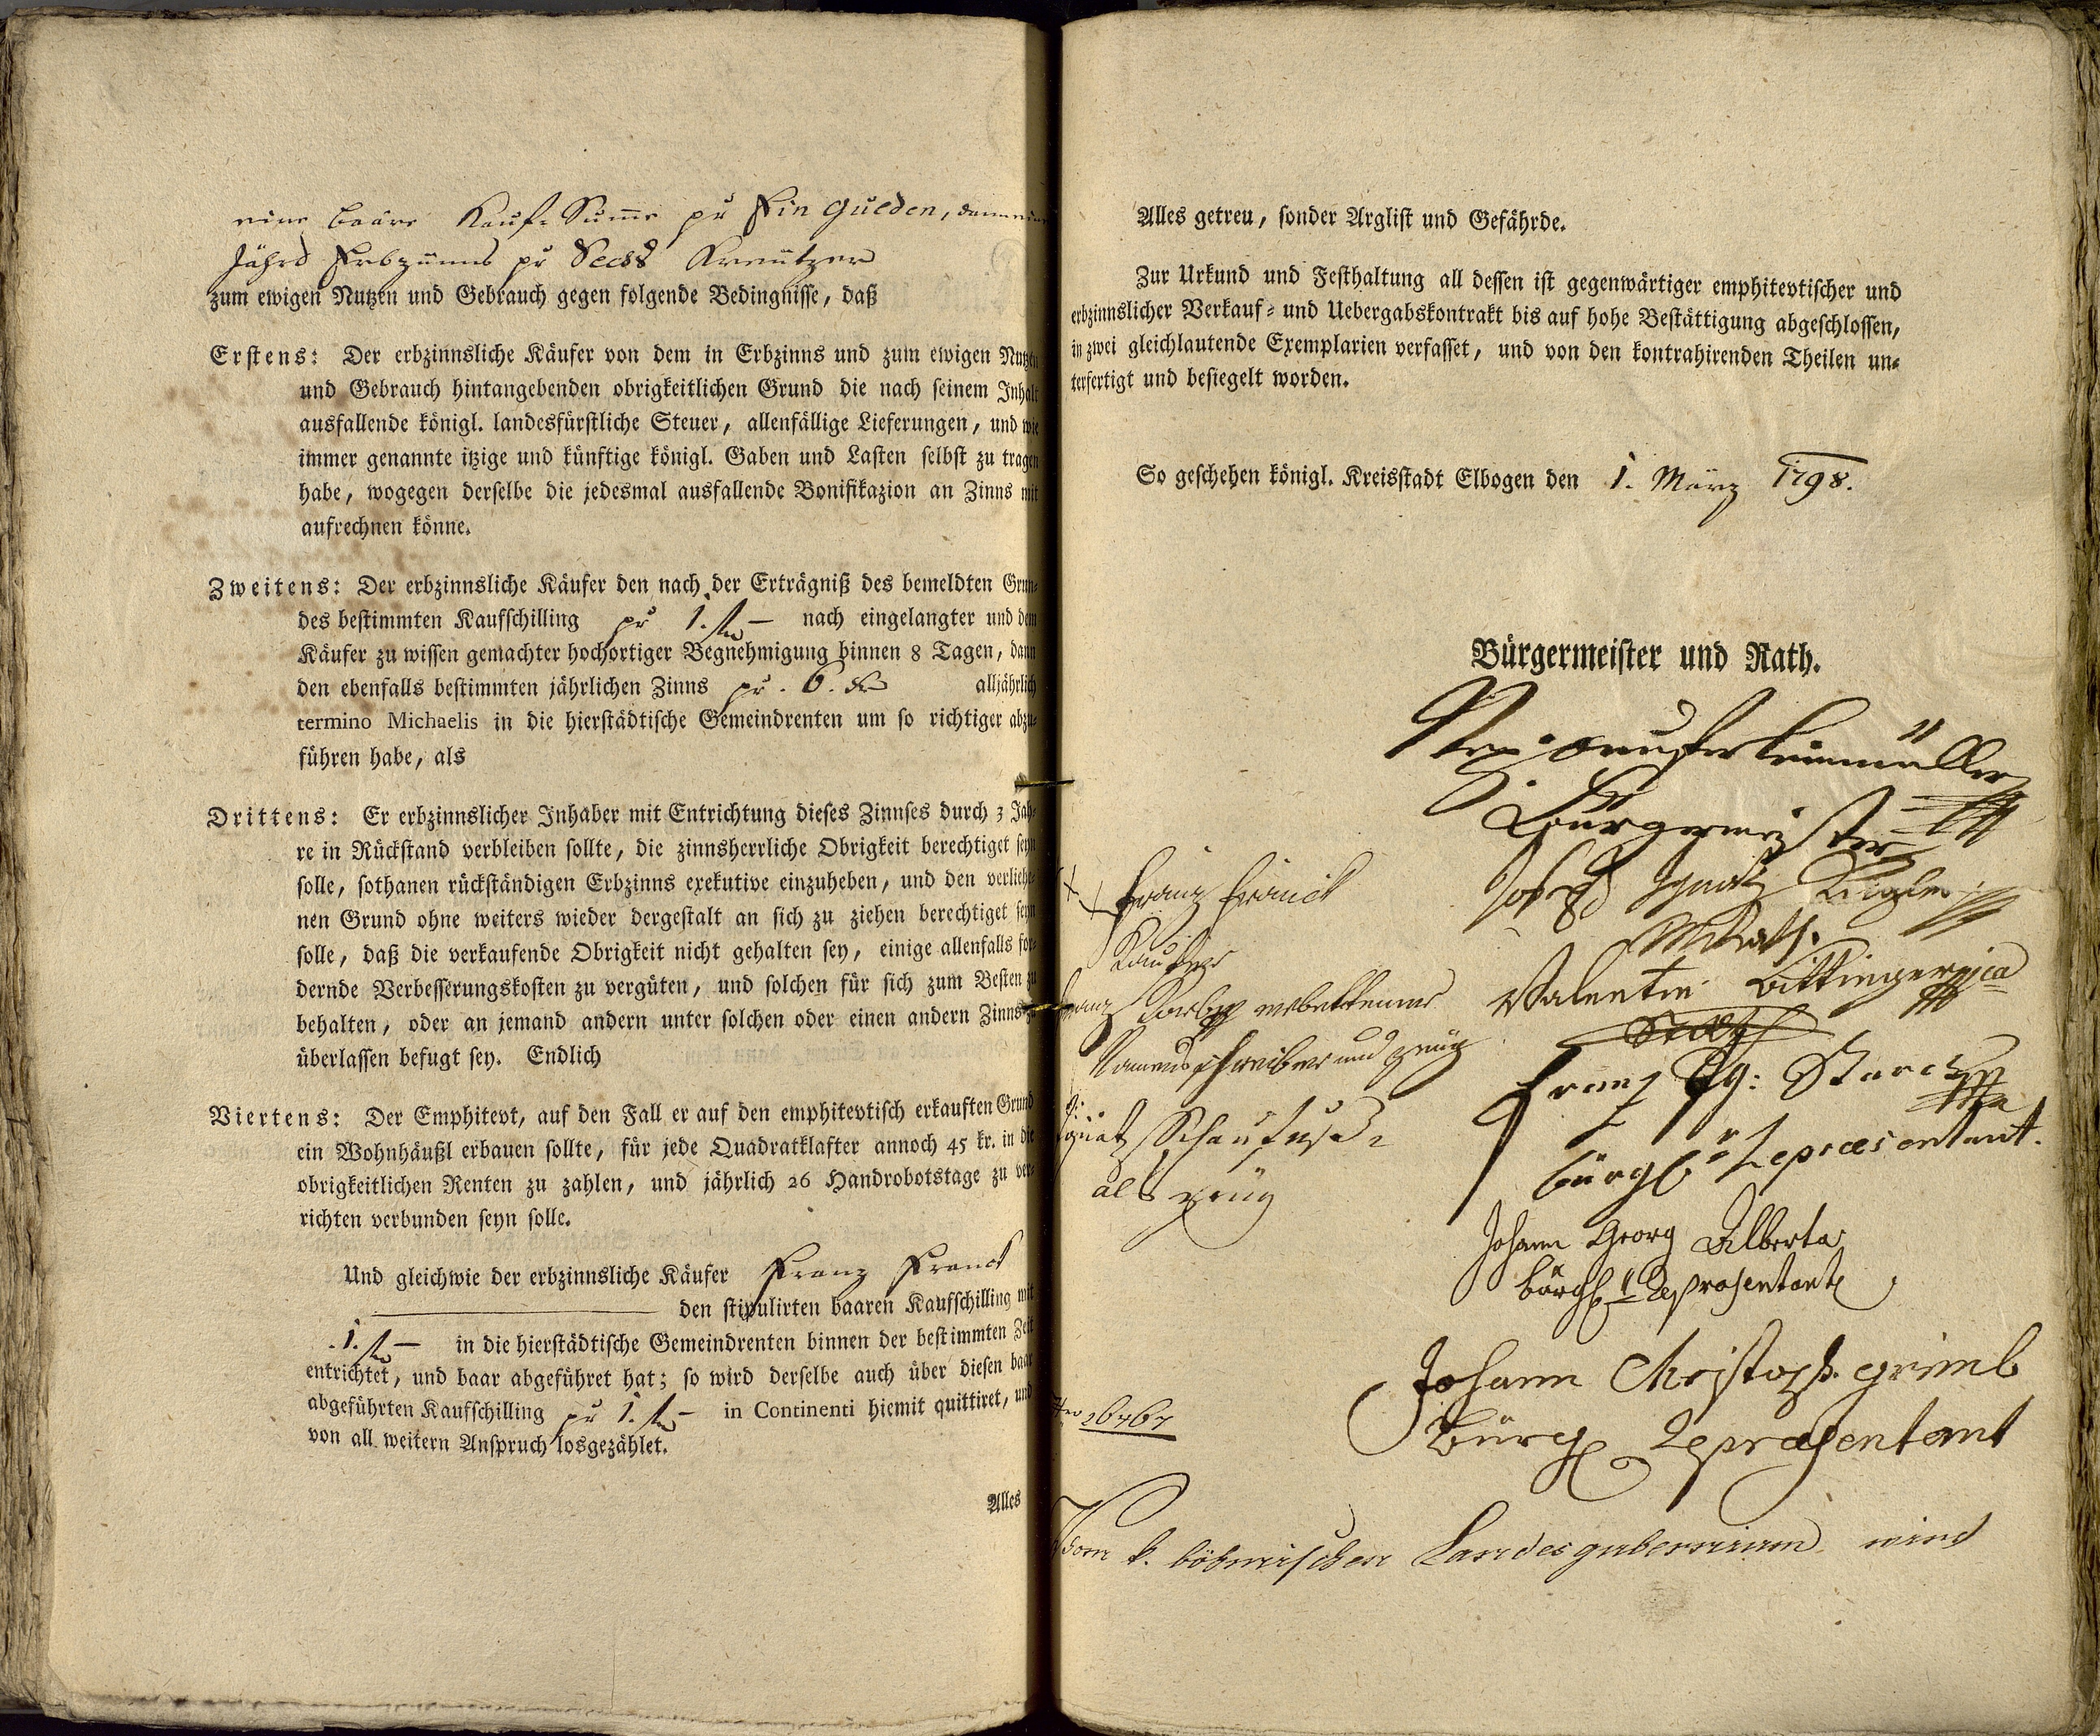 eine baare Kauf-Summe pr Ein Gulden, dann eine
Jährl Erbzinns pr Sechs Kreutzer
zum ewigen Nutzen und Gebrauch gegen folgende Bedingnisse, daß
Erstens: Der erbzinnsliche Käufer von dem in Erbzinns und zum ewigen Nutzen
und Gebrauch hintangebenden obrigkeitlichen Grund die nach seinem Inhalt
ausfallende königl. landesfürstliche Steuer, allenfällige Lieferungen, und wie
immer genannte itzige und künftige königl. Gaben und Lasten selbst zu tragen
habe, wogegen derselbe die jedesmal ausfallende Bonifikazion an Zinns mit
aufrechnen könne.
Zweitens: Der erbzinnsliche Käufer den nach der Erträgniß des bemeldten Grun-
des bestimmten Kaufschilling pr 1. fl — nach eingelangter und dem
Käufer zu wissen gemachter hochortiger Begnehmigung binnen 8 Tagen, dann
den ebenfalls bestimmten jährlichen Zinns pr. 6. kr alljährlich
termino Michaelis in die hierstädtische Gemeindrenten um so richtiger abzu-
führen habe, als
Drittens: Er erbzinnslicher Inhaber mit Entrichtung dieses Zinnses durch 3 Jah-
re in Rückstand verbleiben sollte, die zinnsherrliche Obrigkeit berechtiget seyn
solle, sothanen rückständigen Erbzinns exekutive einzuheben, und den verliehe-
nen Grund ohne weiters wieder dergestalt an sich zu ziehen berechtiget seyn
solle, daß die verkaufende Obrigkeit nicht gehalten sey, einige allenfalls for-
dernde Verbesserungskosten zu vergüten, und solchen für sich zum Besten zu
behalten, oder an jemand andern unter solchen oder einen andern Zinns zu
überlassen befugt sey. Endlich
Viertens: Der Emphitevt, auf den Fall er auf den emphitevtisch erkauften Grund
ein Wohnhäußl erbauen sollte, für jede Quadratklafter annoch 45 kr. in die
obrigkeitlichen Renten zu zahlen, und jährlich 26 Handrobotstage zu ver-
richten verbunden seyn solle.
Und gleichwie der erbzinnsliche Käufer Franz Franck
den stipulirten baaren Kaufschilling mit
1. fl — in die hierstädtische Gemeindrenten binnen der bestimmten Zeit
entrichtet, und baar abgeführet hat; so wird derselbe auch über diesen baar
abgeführten Kaufschilling pr 1. fl — in Continenti hiemit quittiret, und
von all weitern Anspruch losgezählet.
Alles
Alles getreu, sonder Arglist und Gefährde.
Zur Urkund und Festhaltung all dessen ist gegenwärtiger emphitevtischer und
erbzinnslicher Verkauf- und Uebergabskontrakt bis auf hohe Bestättigung abgeschlossen,
in zwei gleichlautende Exemplarien verfasset, und von den kontrahirenden Theilen un-
terfertigt und besiegelt worden.
So geschehen königl. Kreisstadt Elbogen den 1. März 1798.
Bürgermeister und Rath.
Bürgermeister
Joseph Ignatz
MRath.
Valentin
Rath
Franz Ig: Starck
bürgl. Repraesentant.
Johann Georg Alberta
bürgl. Representant
Johann Christoph grimb
Bürgl Repraesentant
XX Franz Franck
Kaufer
Franz erbettener
Namensschreiber und zeug
Ignatz
als zeug
26767
Vom k. böhmischen Landesgubernium wird